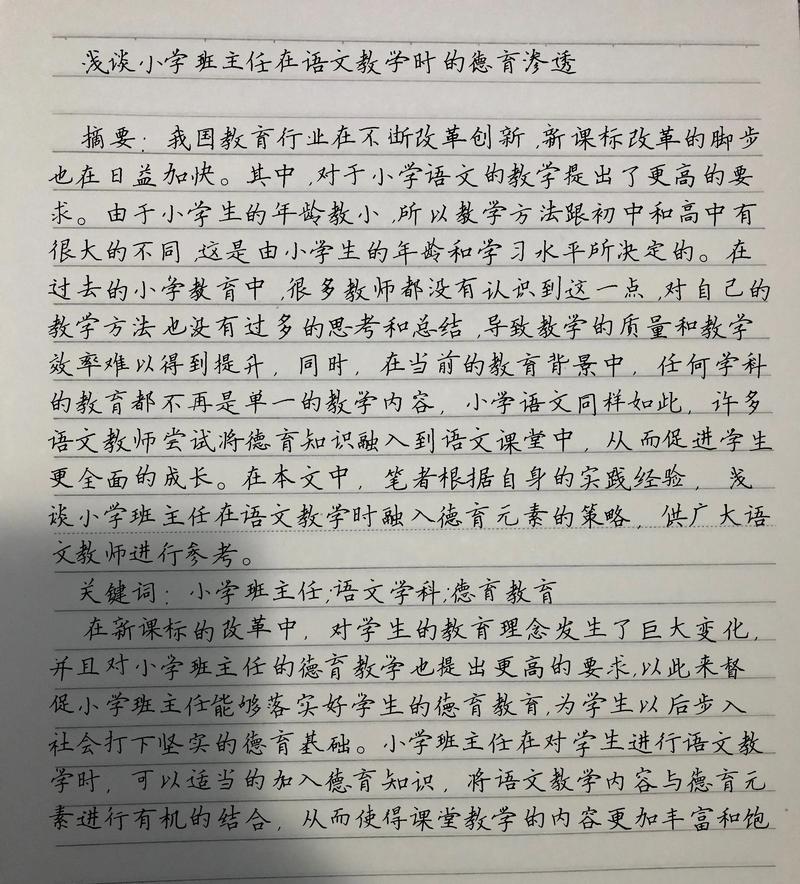 浅谈小学班主任在语文教学时的德育渗透
摘要：我国教育行业在不断改革创新,新课标改革的脚步
也在日益加快。其中,对于小学语文的教学提出了更高的要
求。由于小学生的年龄教小,所以教学方法跟初中和高中有
很大的不同,这是由小学生的年龄和学习水平所决定的。在
过去的小学教育中,很多教师都没有认识到这一点,对自己的
教学方法也没有过多的思考和总结,导致教学的质量和教学
效率难以得到提升，同时，在当前的教育背景中，任何学科
的教育都不再是单一的教学内容，小学语文同样如此，许多
语文教师尝试将德育知识融入到语文课堂中，从而促进学生
更全面的成长。在本文中，笔者根据自身的实践经验，浅
谈小学班主任在语文教学时融入德育元素的策略，供广大语
文教师进行参考。
关键词：小学班主任;语文学科;德育教育
在新课标的改革中，对学生的教育理念发生了巨大变化，
并且对小学班主任的德育教学也提出更高的要求,以此来督
促小学班主任能够落实好学生的德育教育,为学生以后步入
社会打下坚实的德育基础。小学班主任在对学生进行语文教
学时，可以适当的加入德育知识，将语文教学内容与德育元
素进行有机的结合，从而使得课堂教学的内容更加丰富和饱